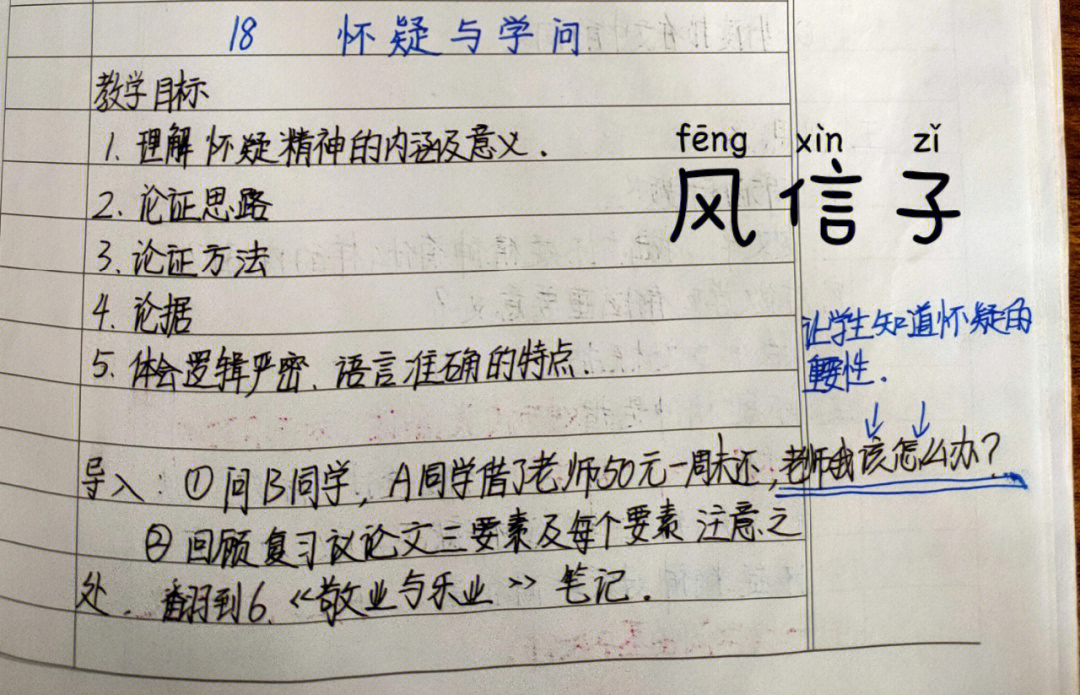 18 怀疑与学问
教学目标
1. 理解怀疑精神的内涵及意义.
2. 论证思路
3. 论证方法
4. 论据
5. 体会逻辑严密、语言准确的特点.
fēng xìn zǐ
风信子
让学生知道怀疑的
重要性.
↓ ↓
导入: ①问B同学, A同学借了老师50元一周未还, 老师我该怎么办?
②回顾复习议论文三要素及每个要素注意之
处. 翻到6.《敬业与乐业》笔记.